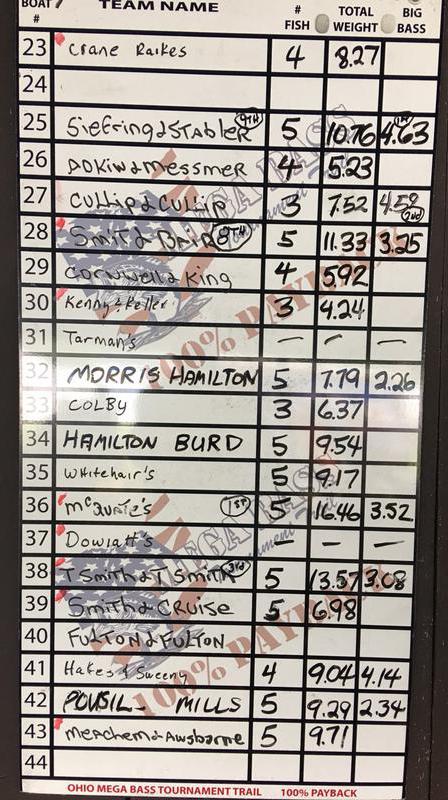 BOAT # TEAM NAME # FISH TOTAL WEIGHT BIG BASS
23 Crane Raikes 4 8.27
24
25 Siefring & Stabler 9TH 5 10.76 4.63 1ST
26 Adkin & messmer 4 5.23
27 Cullip & Cullip 3 7.52 4.52 2nd
28 Smith & Bair 8TH 5 11.33 3.25
29 Cornwell & King 4 5.92
30 Kenny & Keller 3 4.24
31 Tarman's — — —
32 MORRIS HAMILTON 5 7.79 2.26
33 COLBY 3 6.37
34 HAMILTON BURD 5 9.54
35 Whitehair's 5 9.17
36 1ST 5 16.46 3.52
37 — — —
38 T Smith & T Smith 3rd 5 13.57 3.08
39 Smith & Cruise 5 6.98
40 FULTON & FULTON
41 Hakes & Sweeny 4 9.04 4.14
42 MILLS 5 9.29 2.34
43 meachem & Awsbarne 5 9.71
44
OHIO MEGA BASS TOURNAMENT TRAIL 100% PAYBACK